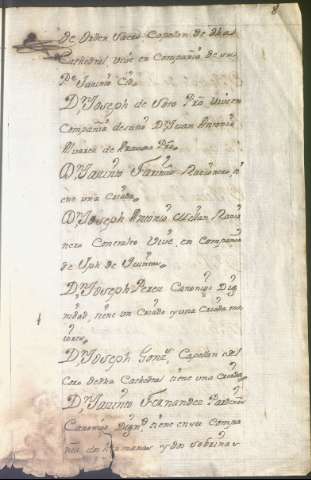 8
de Orden Sacro Capellan de dha
Cathedral, vive en Compañia de su
Pe Jacinto
Dn Joseph de Pro vive en
Compañia de Dn Juan Antonio
Alvarez de Pro
Dn Jacinto Fariñas Racionero, ti
ene una Criada
Dn Joseph Antonio Racio
nero Entero Vive en Compañia
de Jph de
Dn Joseph Perez Canonigo Dig
nidad, tiene un Criado y una Criada ma
iores
Dn Joseph Gonz Capellan del
Coro de dha Cathedral tiene una Criada
Dn Jacinto Fernandez
Canonigo Dign tiene en su Compa
ñia dos hermanas y dos sobrinas